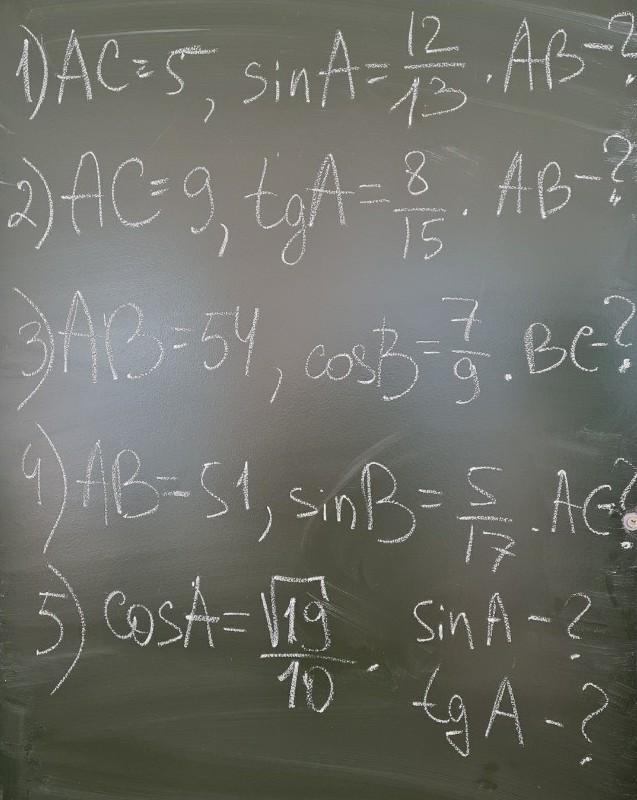 1) AC = 5, sinA = 12/13. AB - ?
2) AC = 9, tgA = 8/15. AB - ?
3) AB = 54, cosB = 7/9. BC - ?
4) AB = 51, sinB = 5/17. AC - ?
5) cosA = √19/10. sinA - ?
tgA - ?